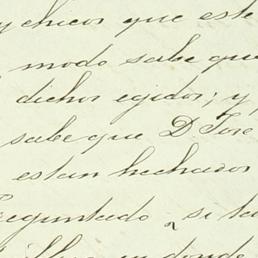 y chicos que este
modo sabe que
dichos egidos; y
sabe que D. José
estan hechados
Preguntado si sa
en donde